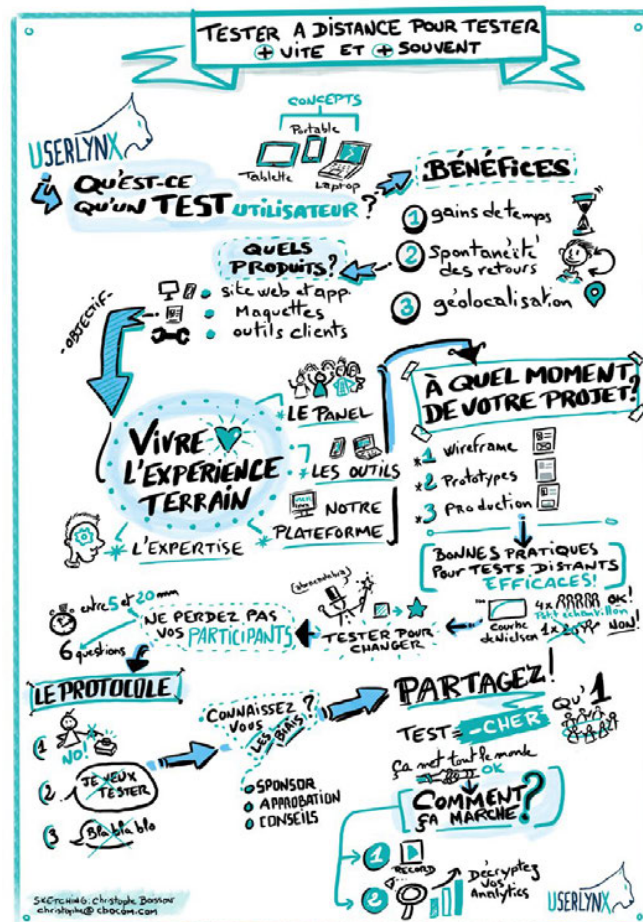 TESTER A DISTANCE POUR TESTER
+ VITE ET + SOUVENT
USERLYNX
CONCEPTS
Portable
Tablette
Laptop
QU'EST-CE
QU'UN TEST UTILISATEUR ?
BÉNÉFICES
1 gains de temps
2 spontanéité
des retours
3 géolocalisation
QUELS
PRODUITS ?
site web et app.
Maquettes
outils clients
-OBJECTIF-
VIVRE
L'EXPÉRIENCE
TERRAIN
LE PANEL
LES OUTILS
NOTRE
PLATEFORME
L'EXPERTISE
À QUEL MOMENT
DE VOTRE PROJET ?
*1 Wireframe
*2 Prototypes
*3 Production
BONNES PRATIQUES
POUR TESTS DISTANTS
EFFICACES !
100
Courbe
de Nielsen
4x OK !
Petit échantillon
1x 20 NON !
abracadabra
TESTER POUR
CHANGER
NE PERDEZ PAS
VOS PARTICIPANTS
entre 5 et 20 mm
6 questions
LE PROTOCOLE
1 NO !
2 JE VEUX
TESTER
3 Bla bla bla
CONNAISSEZ
VOUS
LES BIAIS ?
SPONSOR
APPROBATION
CONSEILS
PARTAGEZ !
TEST = -CHER
QU'1
Ça met tout le monde
OK
COMMENT
ÇA MARCHE ?
1 RECORD
2 Décryptez
vos
Analytics
SKETCHING: Christophe Boisson
christophe@cbocom.com
USERLYNX